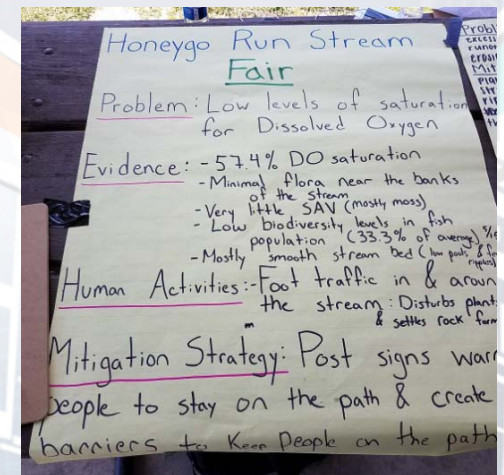 Honeygo Run Stream
Fair
Problem: Low levels of saturation
for Dissolved Oxygen
Evidence: - 57.4% DO saturation
- Minimal flora near the banks
of the stream
- Very little SAV (mostly moss)
- Low biodiversity levels in fish
population (33.3% of average)
- Mostly smooth stream bed (low pools &
Human Activities: - Foot traffic in & aroun
the stream: Disturbs plant
& settles rock form
Mitigation Strategy: Post signs warn
people to stay on the path & create
barriers to Keep People on the path
Probl
excess
runof
erosi
Mit